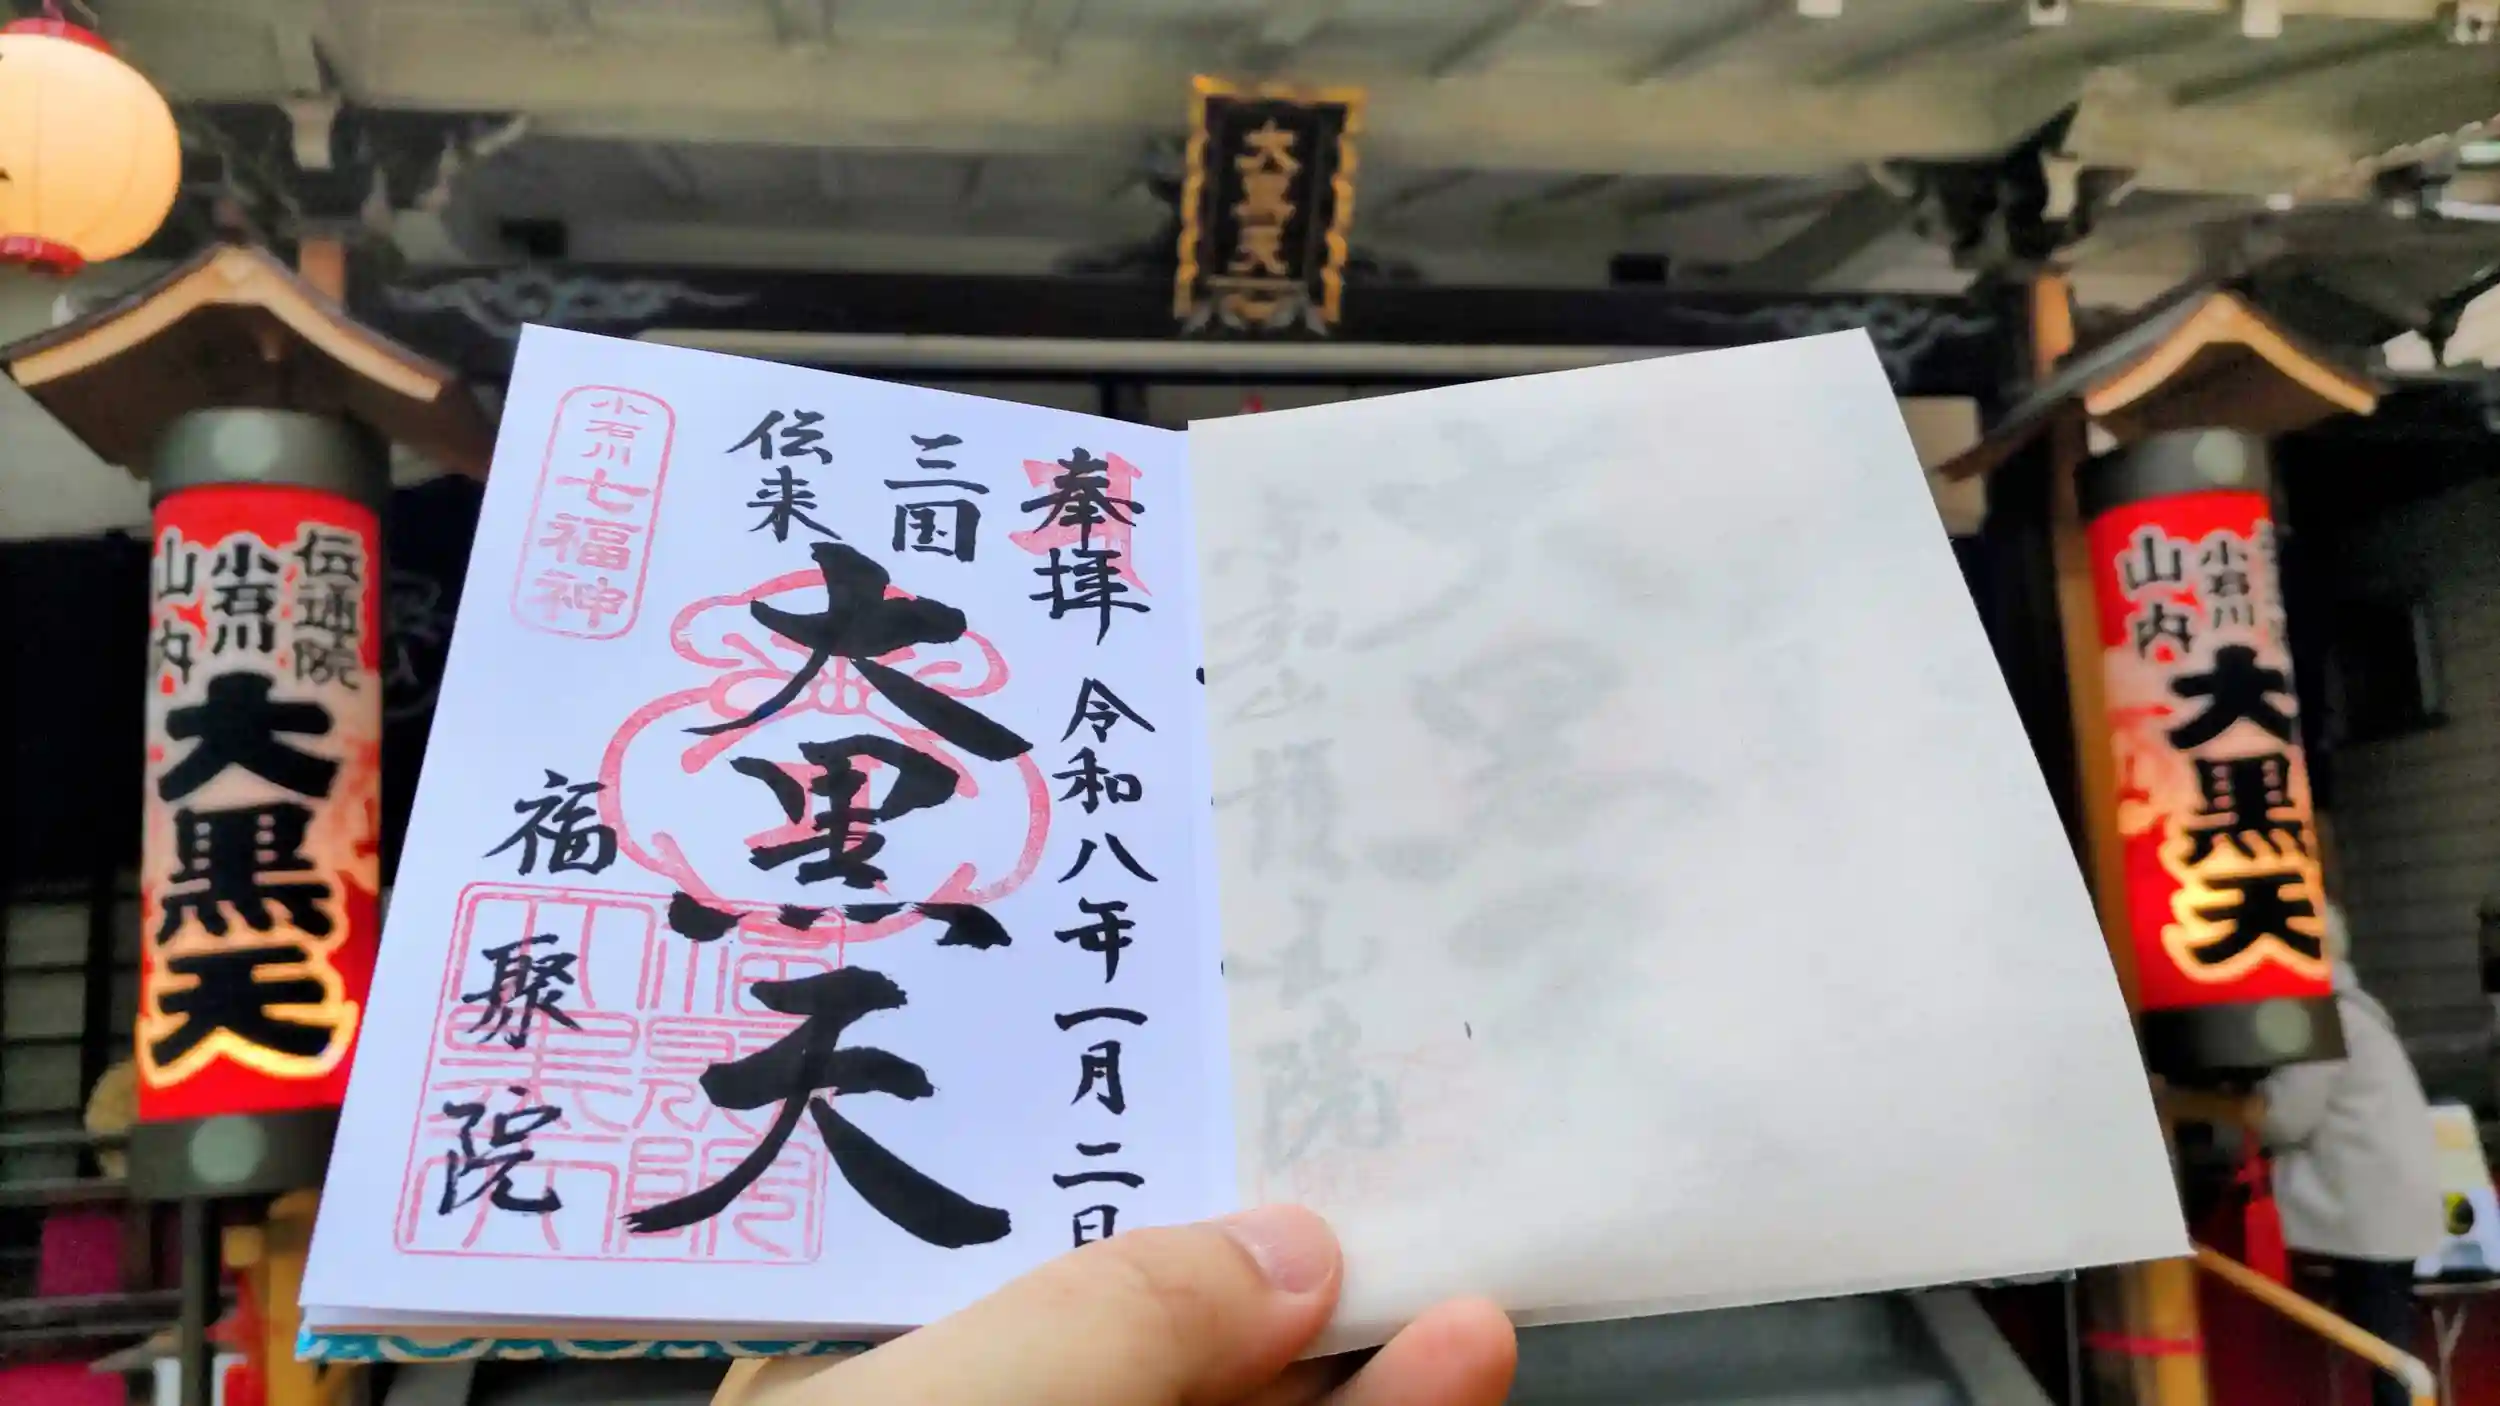 大黒天
奉拝 令和八年一月二日
三国
伝来
大黒天
福聚院
小石川七福神
伝通院
小石川
山内
大黒天
小石川
山内
大黒天